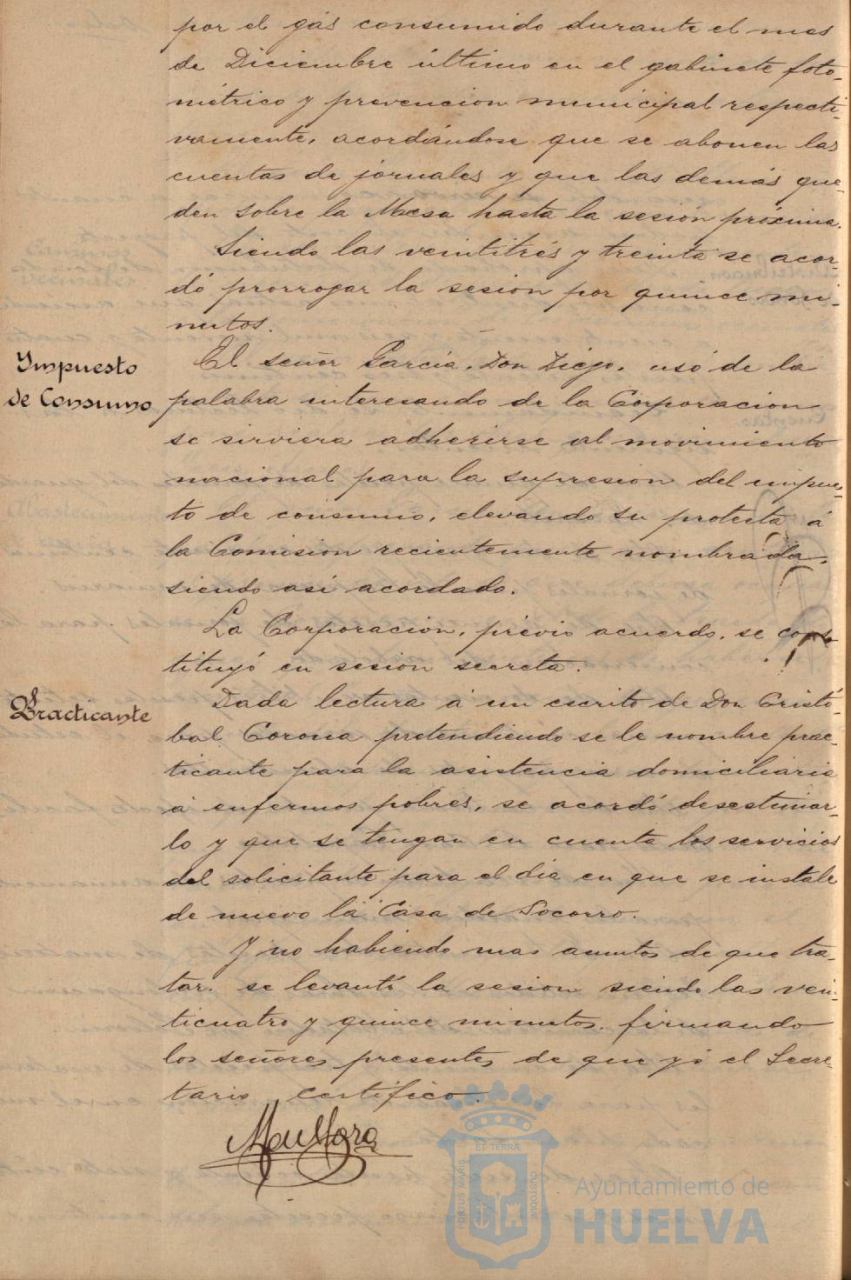 por el gas consumido durante el mes
de Diciembre último en el gabinete foto-
métrico y prevencion municipal respecti-
vamente, acordándose que se abonen las
cuentas de jornales y que las demás que-
den sobre la Mesa hasta la sesión próxima.
Siendo las veintitrés y treinta se acor-
dó prorrogar la sesion por quince mi-
nutos.
Impuesto
de Consumo
El señor García, Don Diego, usó de la
palabra interesando de la Corporacion
se sirviera adherirse al movimiento
nacional para la supresion del impues-
to de consumo, elevando su protesta á
la Comision recientemente nombrada,
siendo asi acordado.
La Corporacion, previo acuerdo, se cons-
tituyó en sesion secreta.
Practicante
Dada lectura á un escrito de Don Cristó-
bal Corona pretendiendo se le nombre prac-
ticante para la asistencia domiciliaria
á enfermos pobres, se acordó desestimar-
lo y que se tengan en cuenta los servicios
del solicitante para el dia en que se instale
de nuevo la Casa de Socorro.
Y no habiendo mas asuntos de que tra-
tar, se levantó la sesion siendo las vein-
ticuatro y quince minutos, firmando
los señores presentes, de que yó el Secre-
tario certifico.
ET TERRAE
PORTUS MARIS
CUSTODIA
Ayuntamiento de
HUELVA